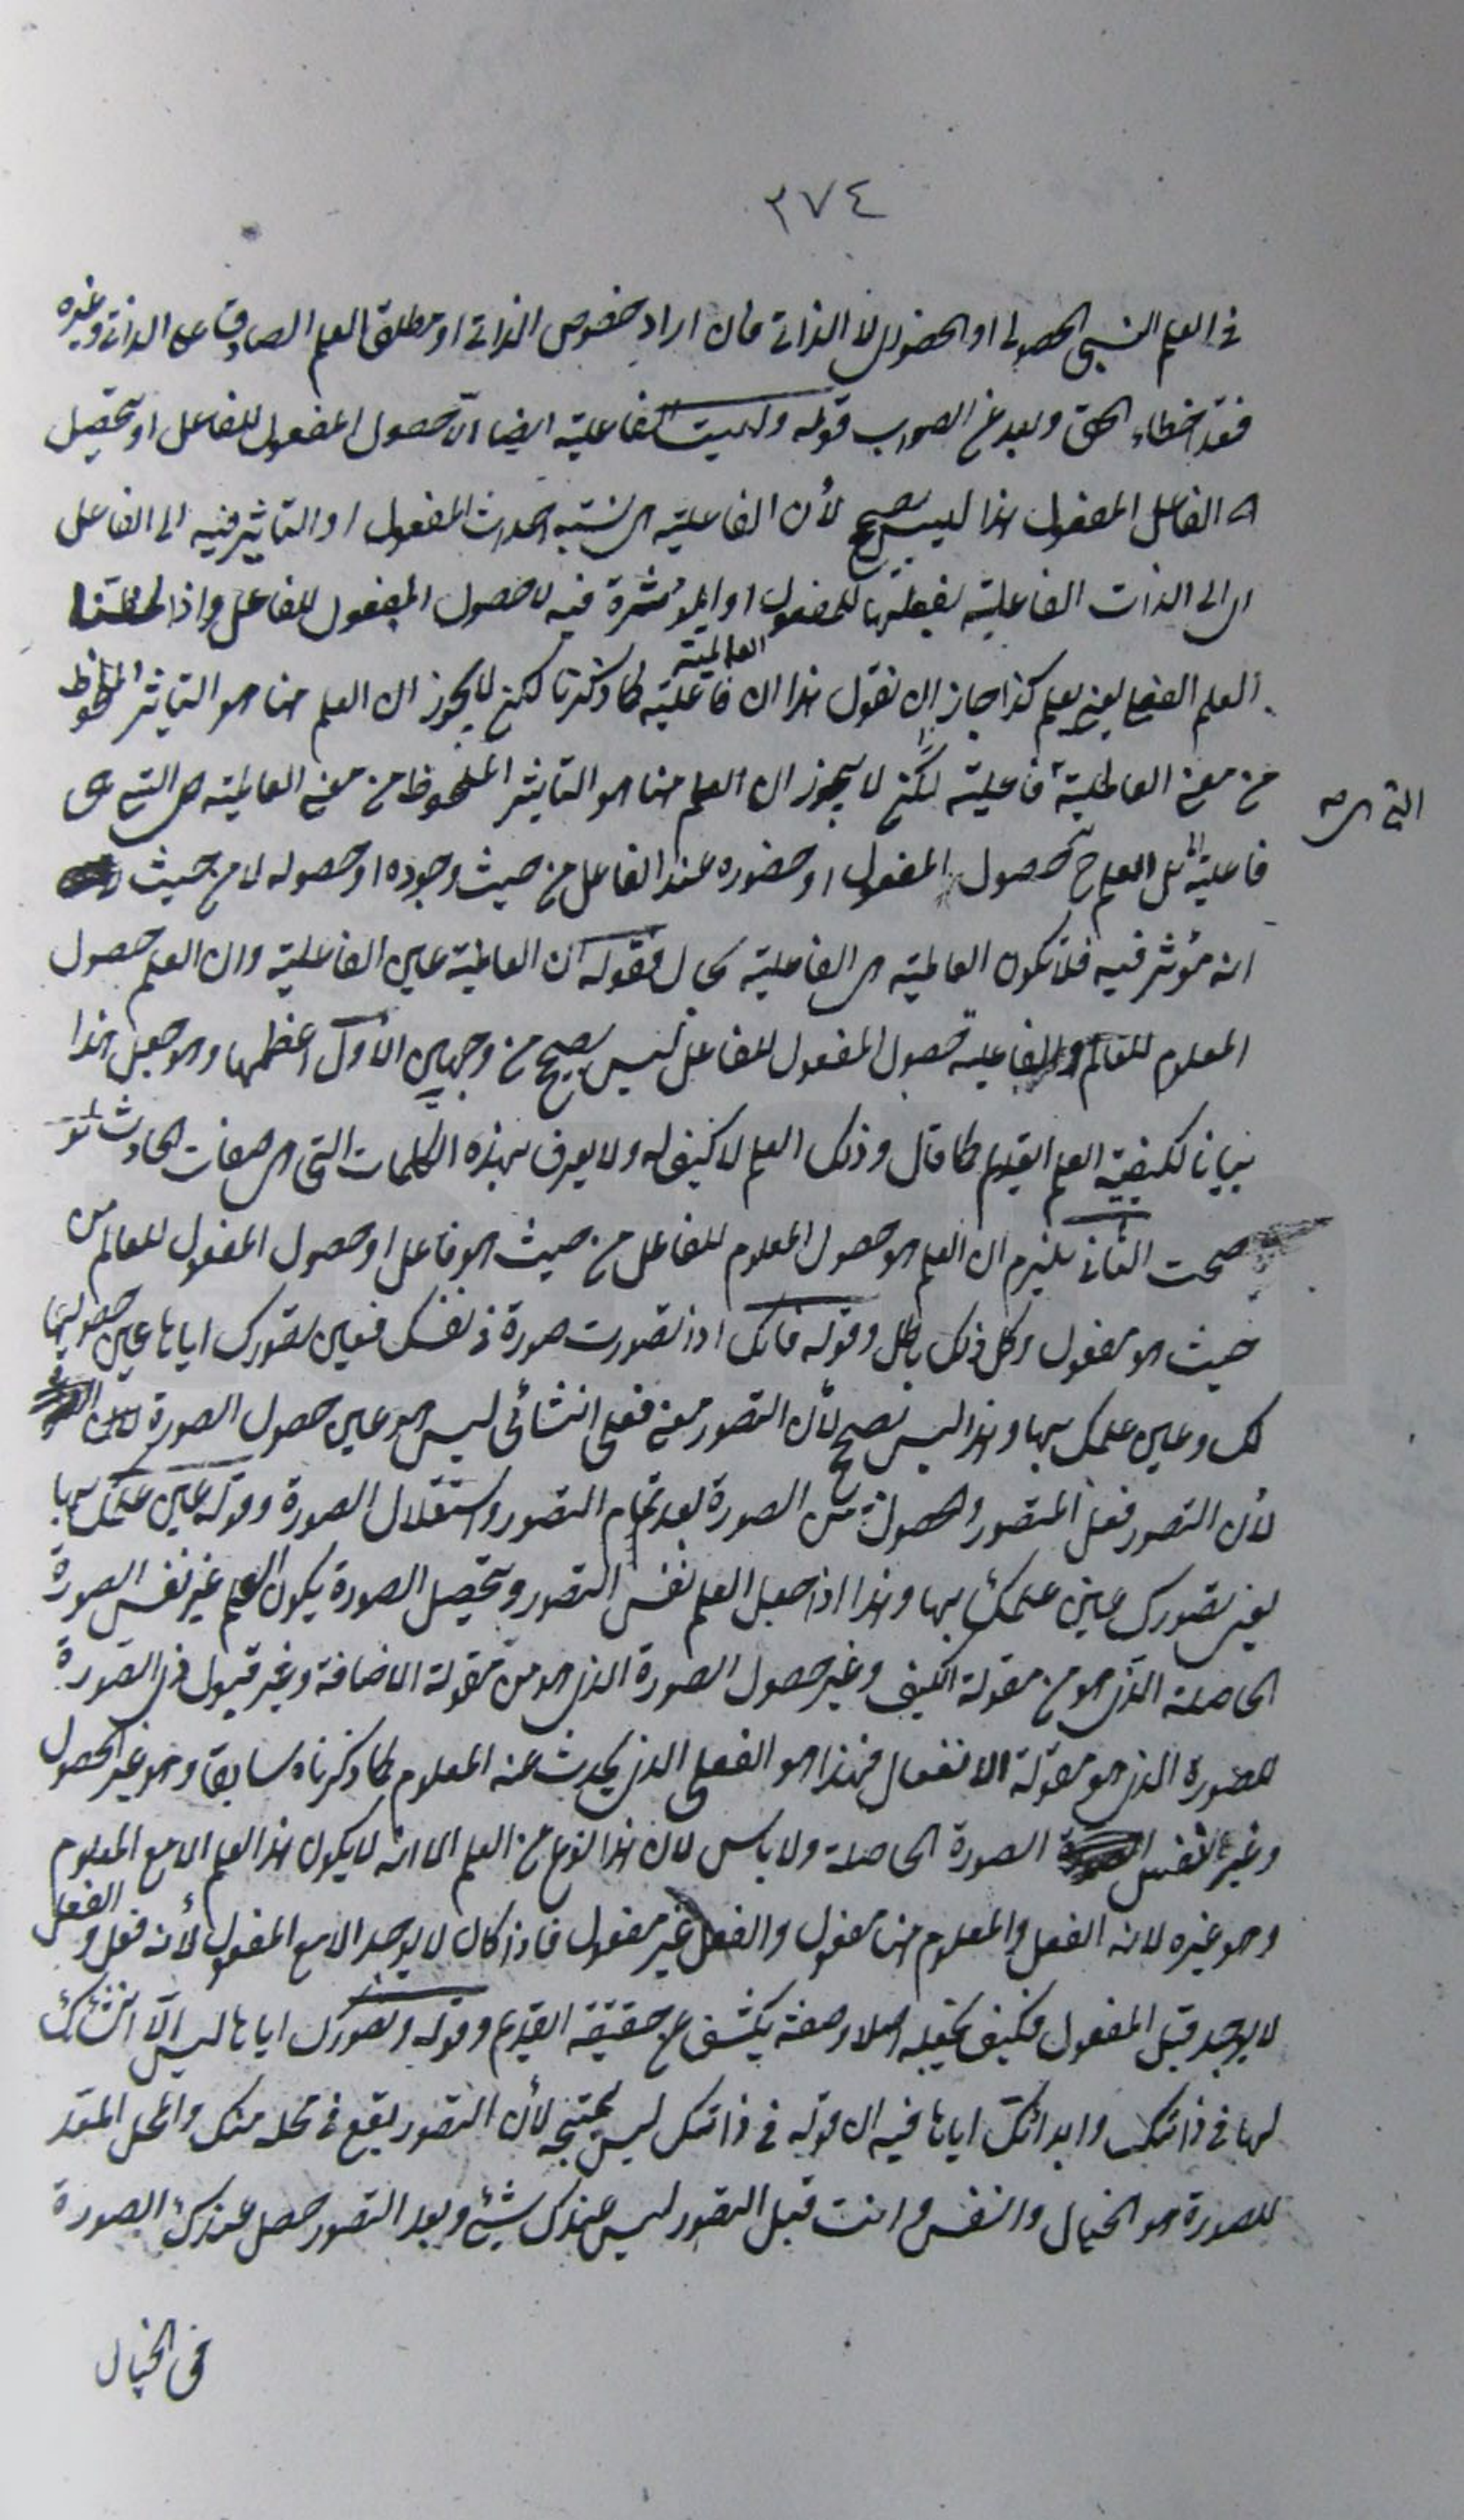 ٣٧٤
في العلم النسبي الحصولي او الحضوري لا الذاتي فان اراد خصوص الذاتي او مطلق العلم الصادق على الذاتي وغيره
فقد اخطاء الحق وبعد عن الصواب قوله وليست الفاعلية ايضا الا حصول المفعول للفاعل او تحصيل
الفاعل المفعول هذا ليس بصحيح لأن الفاعلية هي نسبة احداث المفعول او التاثير فيه الى الفاعل
اي الى الذات الفاعلية بفعلها للمفعول او المؤثرة فيه لا حصول المفعول للفاعل واذا لحظنا
العلم الفعلي يعني يعلم كذا جاز ان نقول هذا ان العالمية فاعلية كما ذكرنا لكن لا يجوز ان العلم هنا هو التاثير الملحوظ
من معنى العالمية فاعلية لكن لا يجوز ان العلم هنا هو التاثير الملحوظ من معنى العالمية هي التي هي
التي هي صح
فاعلية بل العلم ح حصول المفعول او حضوره عند الفاعل من حيث وجوده او حصوله لا من حيث
انه مؤثر فيه فلا تكون العالمية هي الفاعلية بحال فقوله ان العالمية عين الفاعلية وان العلم حصول
المعلوم للعالم والفاعلية حصول المفعول للفاعل ليس بصحيح من وجهين الأول اعظمها وهو جعل هذا
بيانا لكيفية العلم القديم كما قال وذلك العلم لا كيف له ولا يعرف بهذه الكلمات التي هي صفات الحادث لو
صحت الثاني يلزم ان العلم هو حصول المعلوم للفاعل من حيث هو فاعل او حصول المفعول للعالم من
حيث هو مفعول وكل ذلك باطل وقوله فانك اذا تصورت صورة في نفسك فعين تصورك اياها عين حصولها
لك وعين علمك بها وهذا ليس بصحيح لأن التصور معنى فعلي انشائي ليس هو عين حصول الصورة
لأن التصور فعل المتصور والحصول من الصورة بعد تمام التصور واستقلال الصورة وقوله عين علمك بها
يعني تصورك عين علمك بها وهذا اذا جعل العلم نفس التصور وتحصيل الصورة يكون العلم غير نفس الصورة
الحاصلة الذي هو من مقولة الكيف وغير حصول الصورة الذي هو من مقولة الاضافة وغير قبول ذي الصورة
للصورة الذي هو مقولة الانفعال فهذا هو الفعلي الذي يحدث عنه المعلوم كما ذكرناه سابقا وهو غير الحصول
وغير نفس الصورة الحاصلة ولا باس لان هذا نوع من العلم الا انه لا يكون هذا العلم الا مع المعلوم
وهو غيره لانه الفعل والمعلوم هنا مفعول والفعل غير مفعول فاذا كان لا يوجد الا مع المفعول لأنه فعل والفعل
لا يوجد قبل المفعول فكيف يجعله اصلا وصفة يكشف عن حقيقة القديم وقوله وتصورك اياها ليس الا انشائك
لها في ذاتك وابدائك اياها فيه ان قوله في ذاتك ليس بمتجه لأن التصور يقع في محله منك والمحل المعد
للصورة هو الخيال والنفس وانت قبل التصور ليس عندك شيئ وبعد التصور حصل عندك الصورة
في الخيال